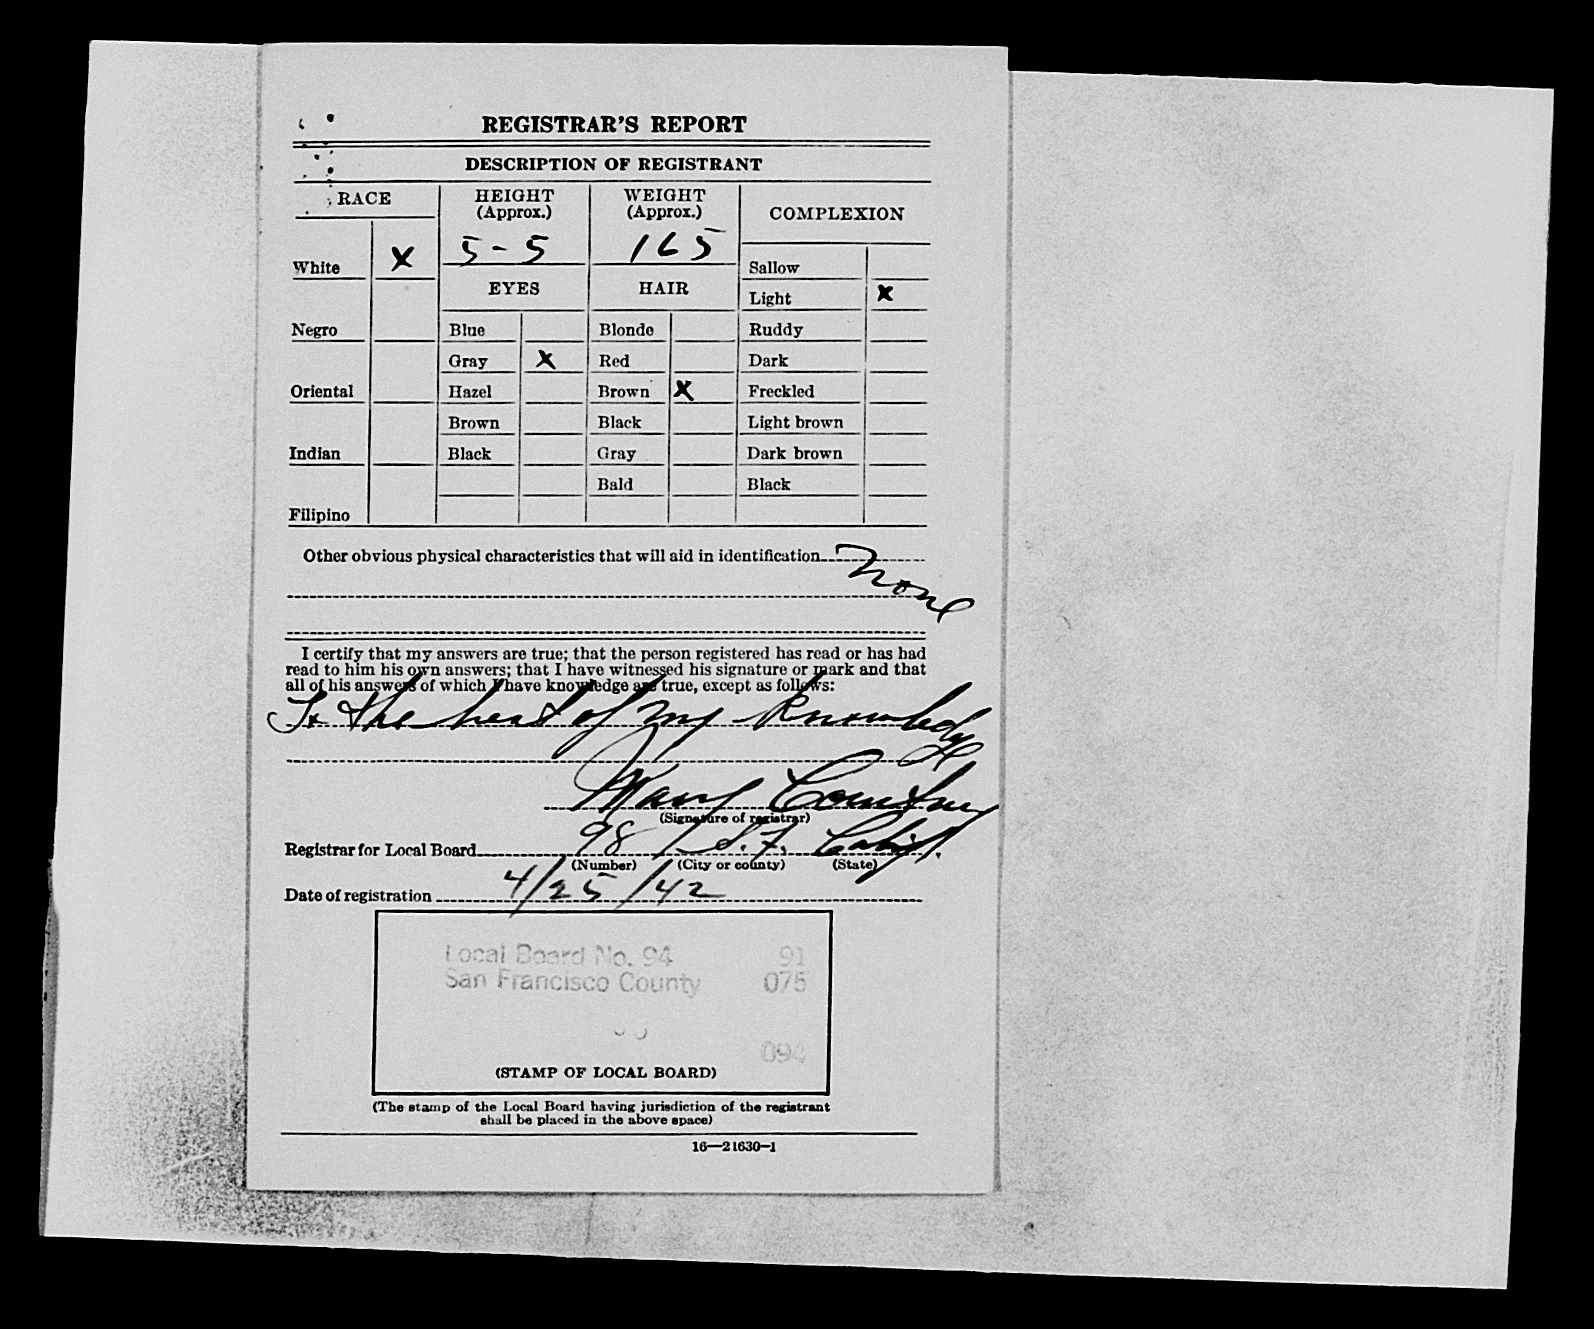 REGISTRAR'S REPORT
DESCRIPTION OF REGISTRANT
RACE
HEIGHT (Approx.)
WEIGHT (Approx.)
COMPLEXION
White X
5-5
165
Sallow
EYES
HAIR
Light X
Negro
Blue
Blonde
Ruddy
Gray X
Red
Dark
Oriental
Hazel
Brown X
Freckled
Brown
Black
Light brown
Indian
Black
Gray
Dark brown
Bald
Black
Filipino
Other obvious physical characteristics that will aid in identification None
I certify that my answers are true; that the person registered has read or has had
read to him his own answers; that I have witnessed his signature or mark and that
all of his answers of which I have knowledge are true, except as follows:
To the best of my knowledge
Mary Courtney
(Signature of registrar)
Registrar for Local Board 98 / S.F. Calif.
(Number) (City or county) (State)
Date of registration 4/25/42
Local Board No. 94 91
San Francisco County 075
094
(STAMP OF LOCAL BOARD)
(The stamp of the Local Board having jurisdiction of the registrant
shall be placed in the above space)
16—21630-1